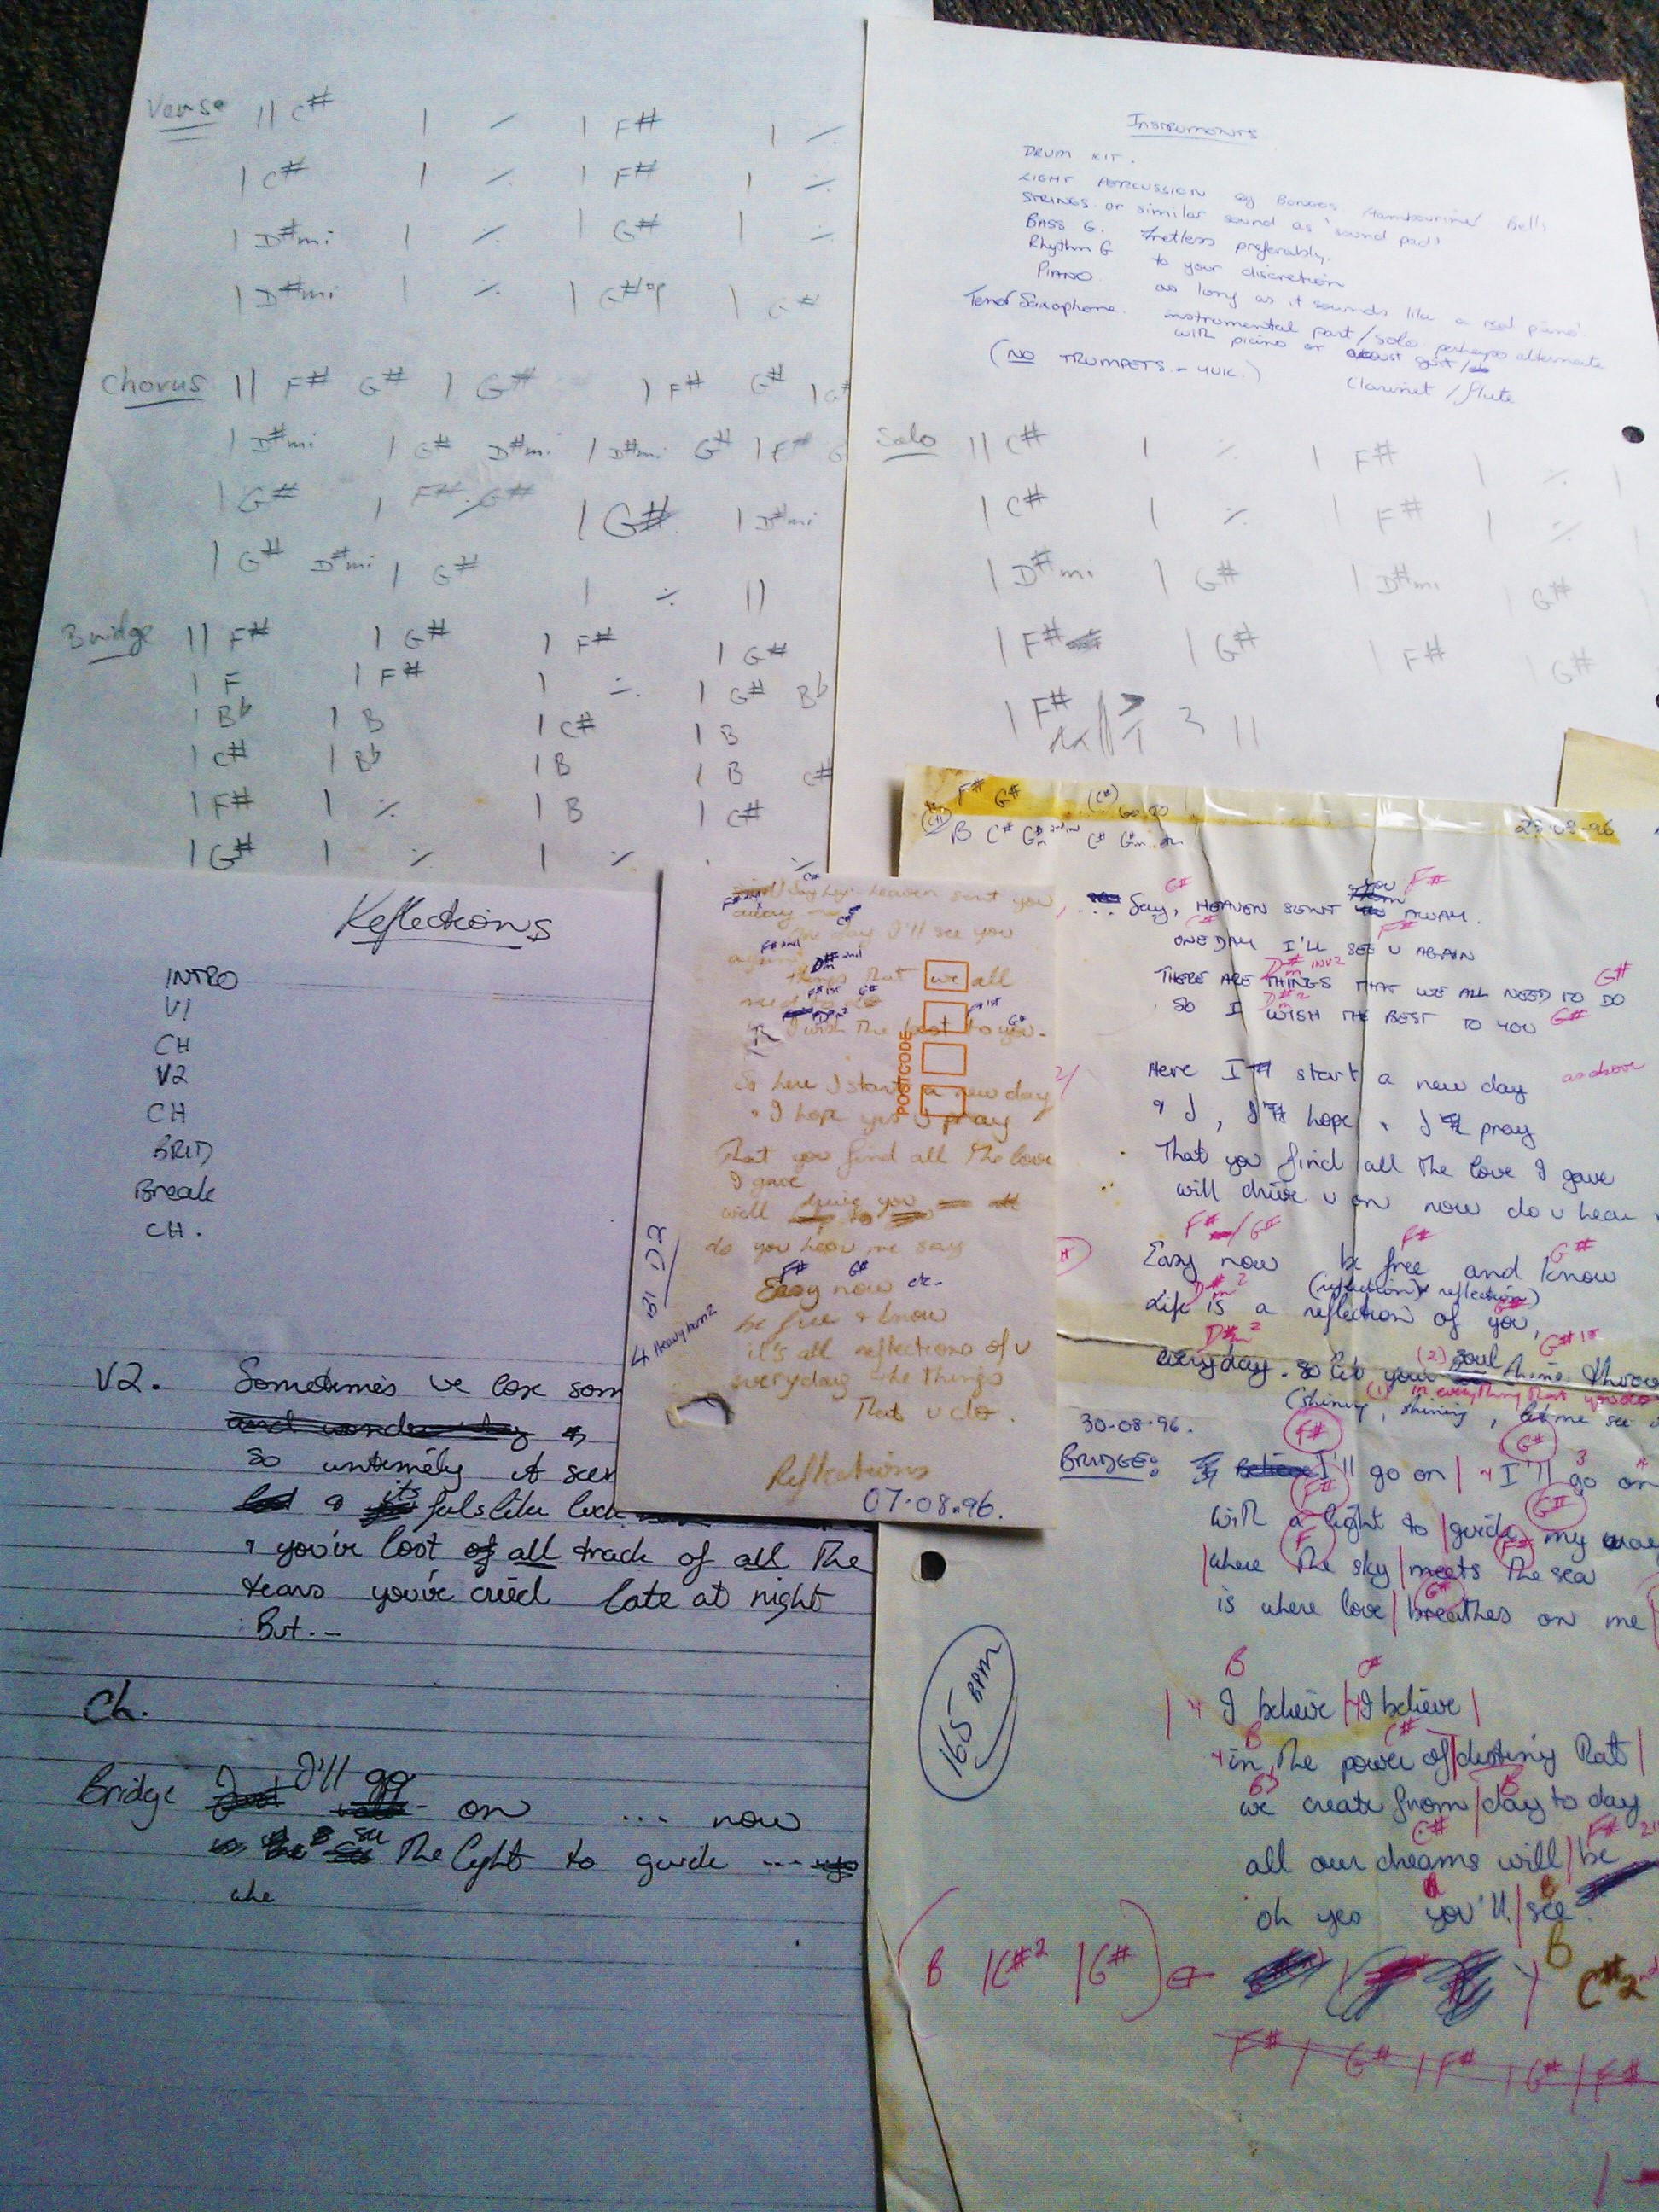 Verse || C# | ٪ | F# | ٪
| C# | ٪ | F# | ٪
| D#mi | ٪ | G# | ٪
| D#mi | ٪ | G# | G#
Chorus || F# G# | G# | F# G# | G#
| D#mi | G# D#mi | D#mi G# | F# G
| G# | F# G# | G# | D#mi
| G# D#mi | G# | ٪ ||
Bridge || F# | G# | F# | G#
| F | F# | ٪ | G# Bb
| Bb | B | C# | B
| C# | Bb | B | B C#
| F# | ٪ | B | C#
| G# | ٪ | ٪ ٪
Instruments
DRUM KIT.
LIGHT PERCUSSION eg Bongos / tambourine / Bells
STRINGS or similar sound as 'sound pad'
BASS G. Fretless preferably.
Rhythm G to your discretion
PIANO as long as it sounds like a real piano.
Tenor Saxophone. instrumental part/solo perhaps alternate
with piano or
(NO TRUMPETS - YUK.) Clarinet / flute
Solo || C# | ٪ | F# | ٪ |
| C# | ٪ | F# | ٪
| D#mi | G# | D#mi G#
| F# | G# | F# G#
| F# 3 ||
Reflections
INTRO
V1
CH
V2
CH
BRID
Break
CH.
V2. Sometimes we lose som
so untimely it seem
& its feels like
& you've lost of all track of all the
tears you've cried late at night
But.--
Ch.
Bridge I'll go on ... now
see The light to guide ...
whe
say heaven sent you
away
One day I'll see you
again
things that we all
need to do
I wish the best to you.
POSTCODE
So here I start a new day
& I hope yes I pray
That you find all the love
I gave
will drive you
do you hear me say
F# G#
Easy now etc.
be free & know
it's all reflections of u
everyday the things
That u do.
Reflections
07.08.96.
F# G# (C#)
(CH) B C# C# 25.08.96
G# F#
... Say, HEAVEN SENT you AWAY.
ONE DAY I'LL SEE U AGAIN
D#m INV2 G#
THERE ARE THINGS THAT WE ALL NEED TO DO
D#m2
SO I WISH THE BEST TO YOU G#
2/ Here I start a new day as above
& I, I hope & I pray
That you find all the love I gave
will drive u on now do u hear
F#/G# F# G#
Easy now be free and know
(reflection) (reflection)
D#m2
Life is a reflection of you,
D#m2 G# 1st
everyday. so let your (2) soul shine throu
(1) in everything that you do
(shining, shining, let me see
30-08-96. F# G#
BRIDGE: I'll go on | I'll go on
F# G#
with a light to | guide my way
F F#
| where the sky | meets the sea
G#
is where love | breathes on me
165 BPM
B C#
| I believe | I believe |
B C#
in the power of | destiny that |
Bb B
we create from | day to day
C# F#
all our dreams will | be
B
oh yes you'll | see
(B | C#2 | G#) B C#2nd
F# | G# | F# | G# | F#